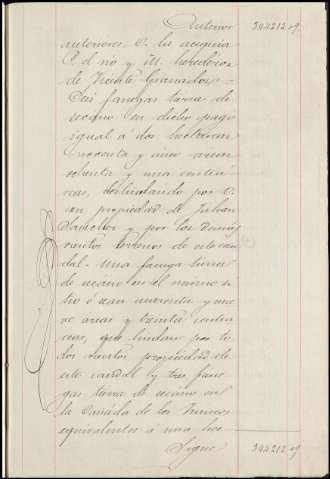 Anterior 344212 09
anteriores. O. la acequia
P. el río y M. herederos
de Vicente Granados =
Seis fanegas tierra de
secano en dicho pago
igual á dos hectáreas
noventa y una
ochenta y una centiá
reas, deslindando por O.
con propiedad de Julian
Sanchez y por los demás
vientos terreno de este cau
dal = Una fanega tierra
de secano en el mismo si
tio ó sean cuarenta y nue
ve areas y treinta centiá
reas, que lindan por to
dos vientos propiedad de
este caudal = y tres fane
gas tierra de secano en
la Cañada de los
equivalentes á una hec
Sigue 344212 09